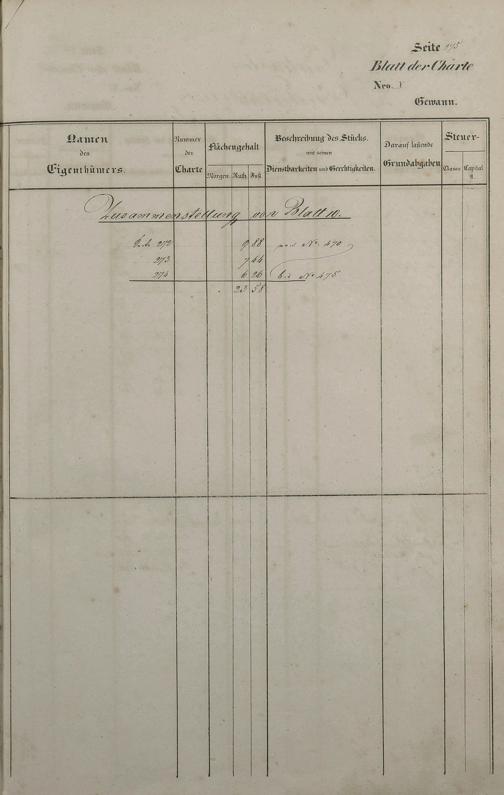 Seite 195
Blatt der Charte
Nro. X
Gewann.
Namen des Eigenthümers.
Nummer der Charte
Flächengehalt
Morgen. Ruth. Fuß.
Beschreibung des Stücks. mit seinen Dienstbarkeiten und Gerechtigkeiten.
Darauf lastende Grundabgaben
Steuer-
Classe Capital fl.
Zusammenstellung von Blatt 10.
Seite 272 9 88 von No. 470
273 7 44
274 6 26 bis No. 475
23 58